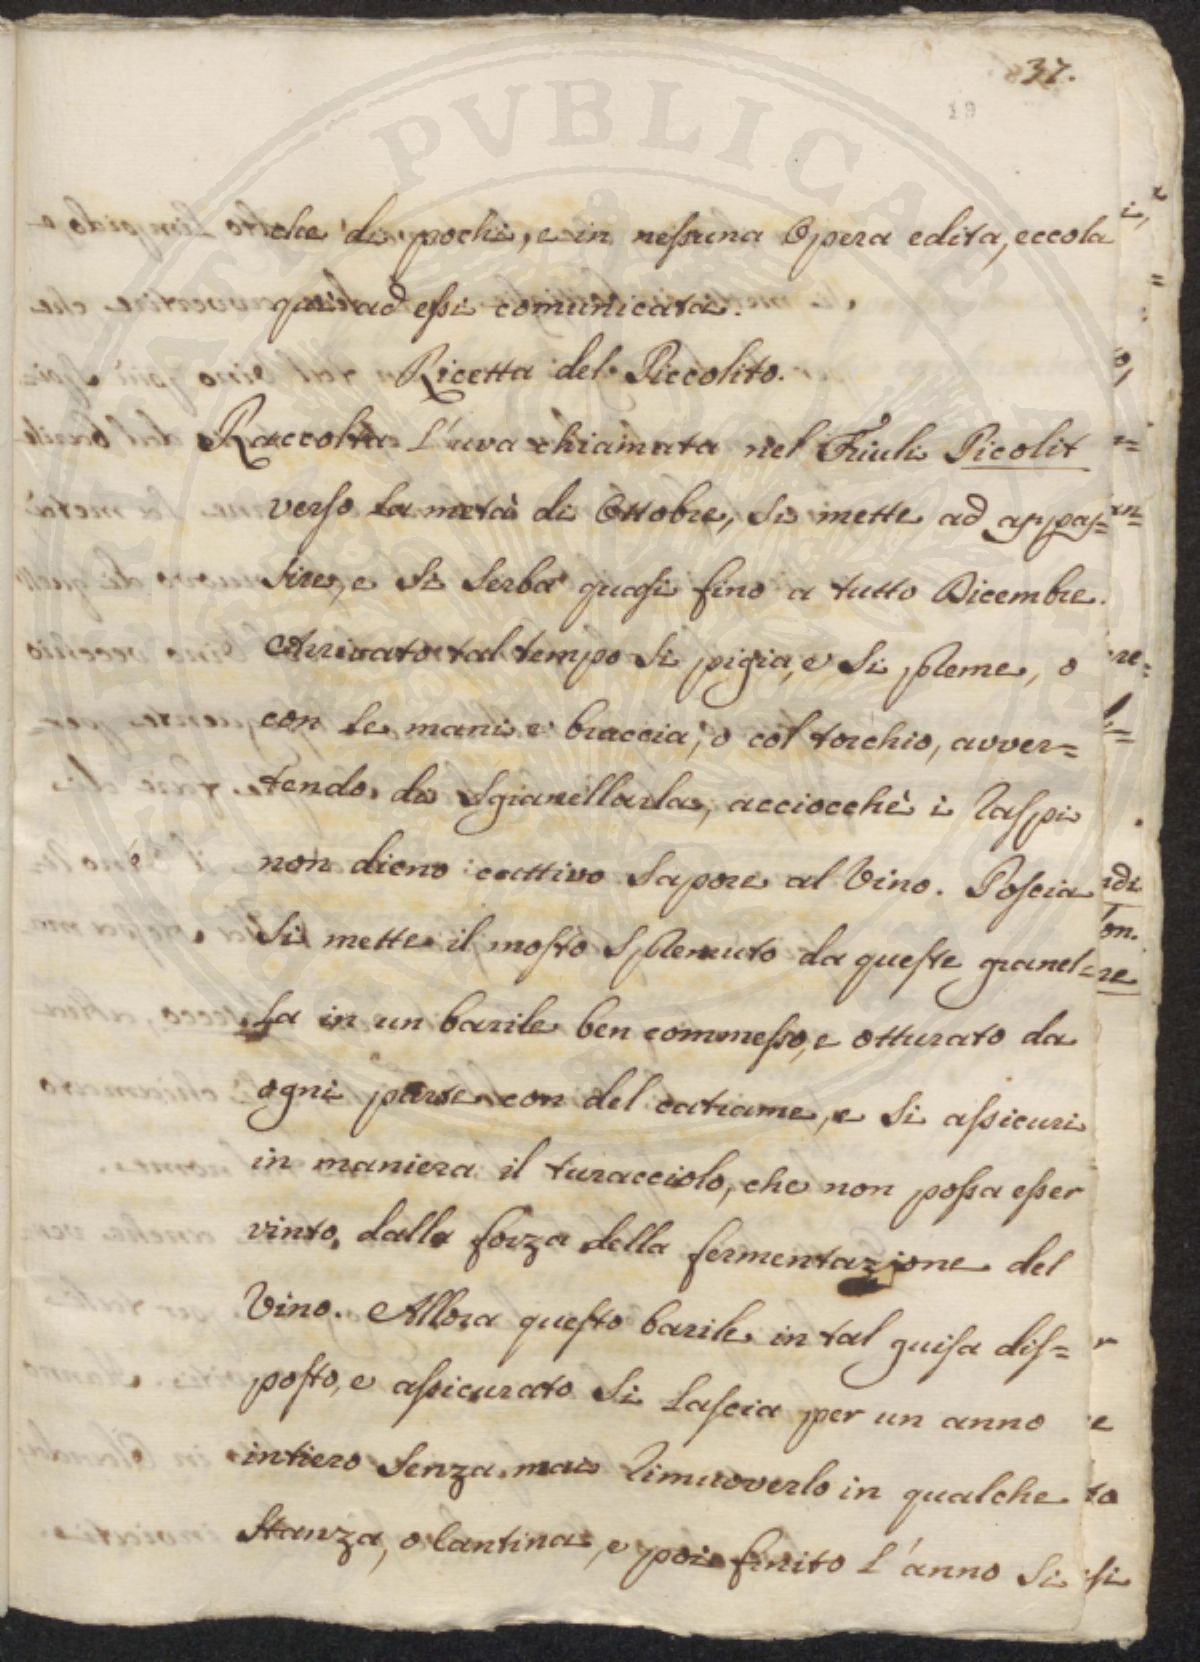 37.
19
PVBLICAE
che di pochi, e in nessuna Opera edita, eccola
qui ad essi comunicata.
Ricetta del Piccolito.
Raccolta l'uva chiamata nel Friuli Picolit
verso la metà di Ottobre, si mette ad appas=
sire, e si serba quasi fino a tutto Dicembre.
Arrivato tal tempo si pigia, e si spreme, o
con le mani e braccia, o col torchio, avver=
tendo di sgranellarla, acciocchè i raspi
non dieno cattivo sapore al Vino. Poscia
si mette il mosto spremuto da queste granel=
la in un barile ben commesso, e otturato da
ogni parte con del catrame, e si assicuri
in maniera il turacciolo, che non possa esser
vinto dalla forza della fermentazione del
Vino. Allora questo barile in tal guisa dis=
posto, e assicurato si lascia per un anno
intiero senza mai rimuoverlo in qualche
stanza, o cantina, e poi finito l'anno si